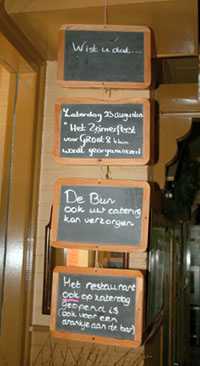 Wist u dat....
Zaterdag 25 augustus
"Het Zomerfeest
voor GROOT & klein
wordt georganiseerd
De Bun
ook uw catering
kan verzorgen
Het restaurant
ook op zaterdag
geopend is
(ook voor een
drankje aan de bar)